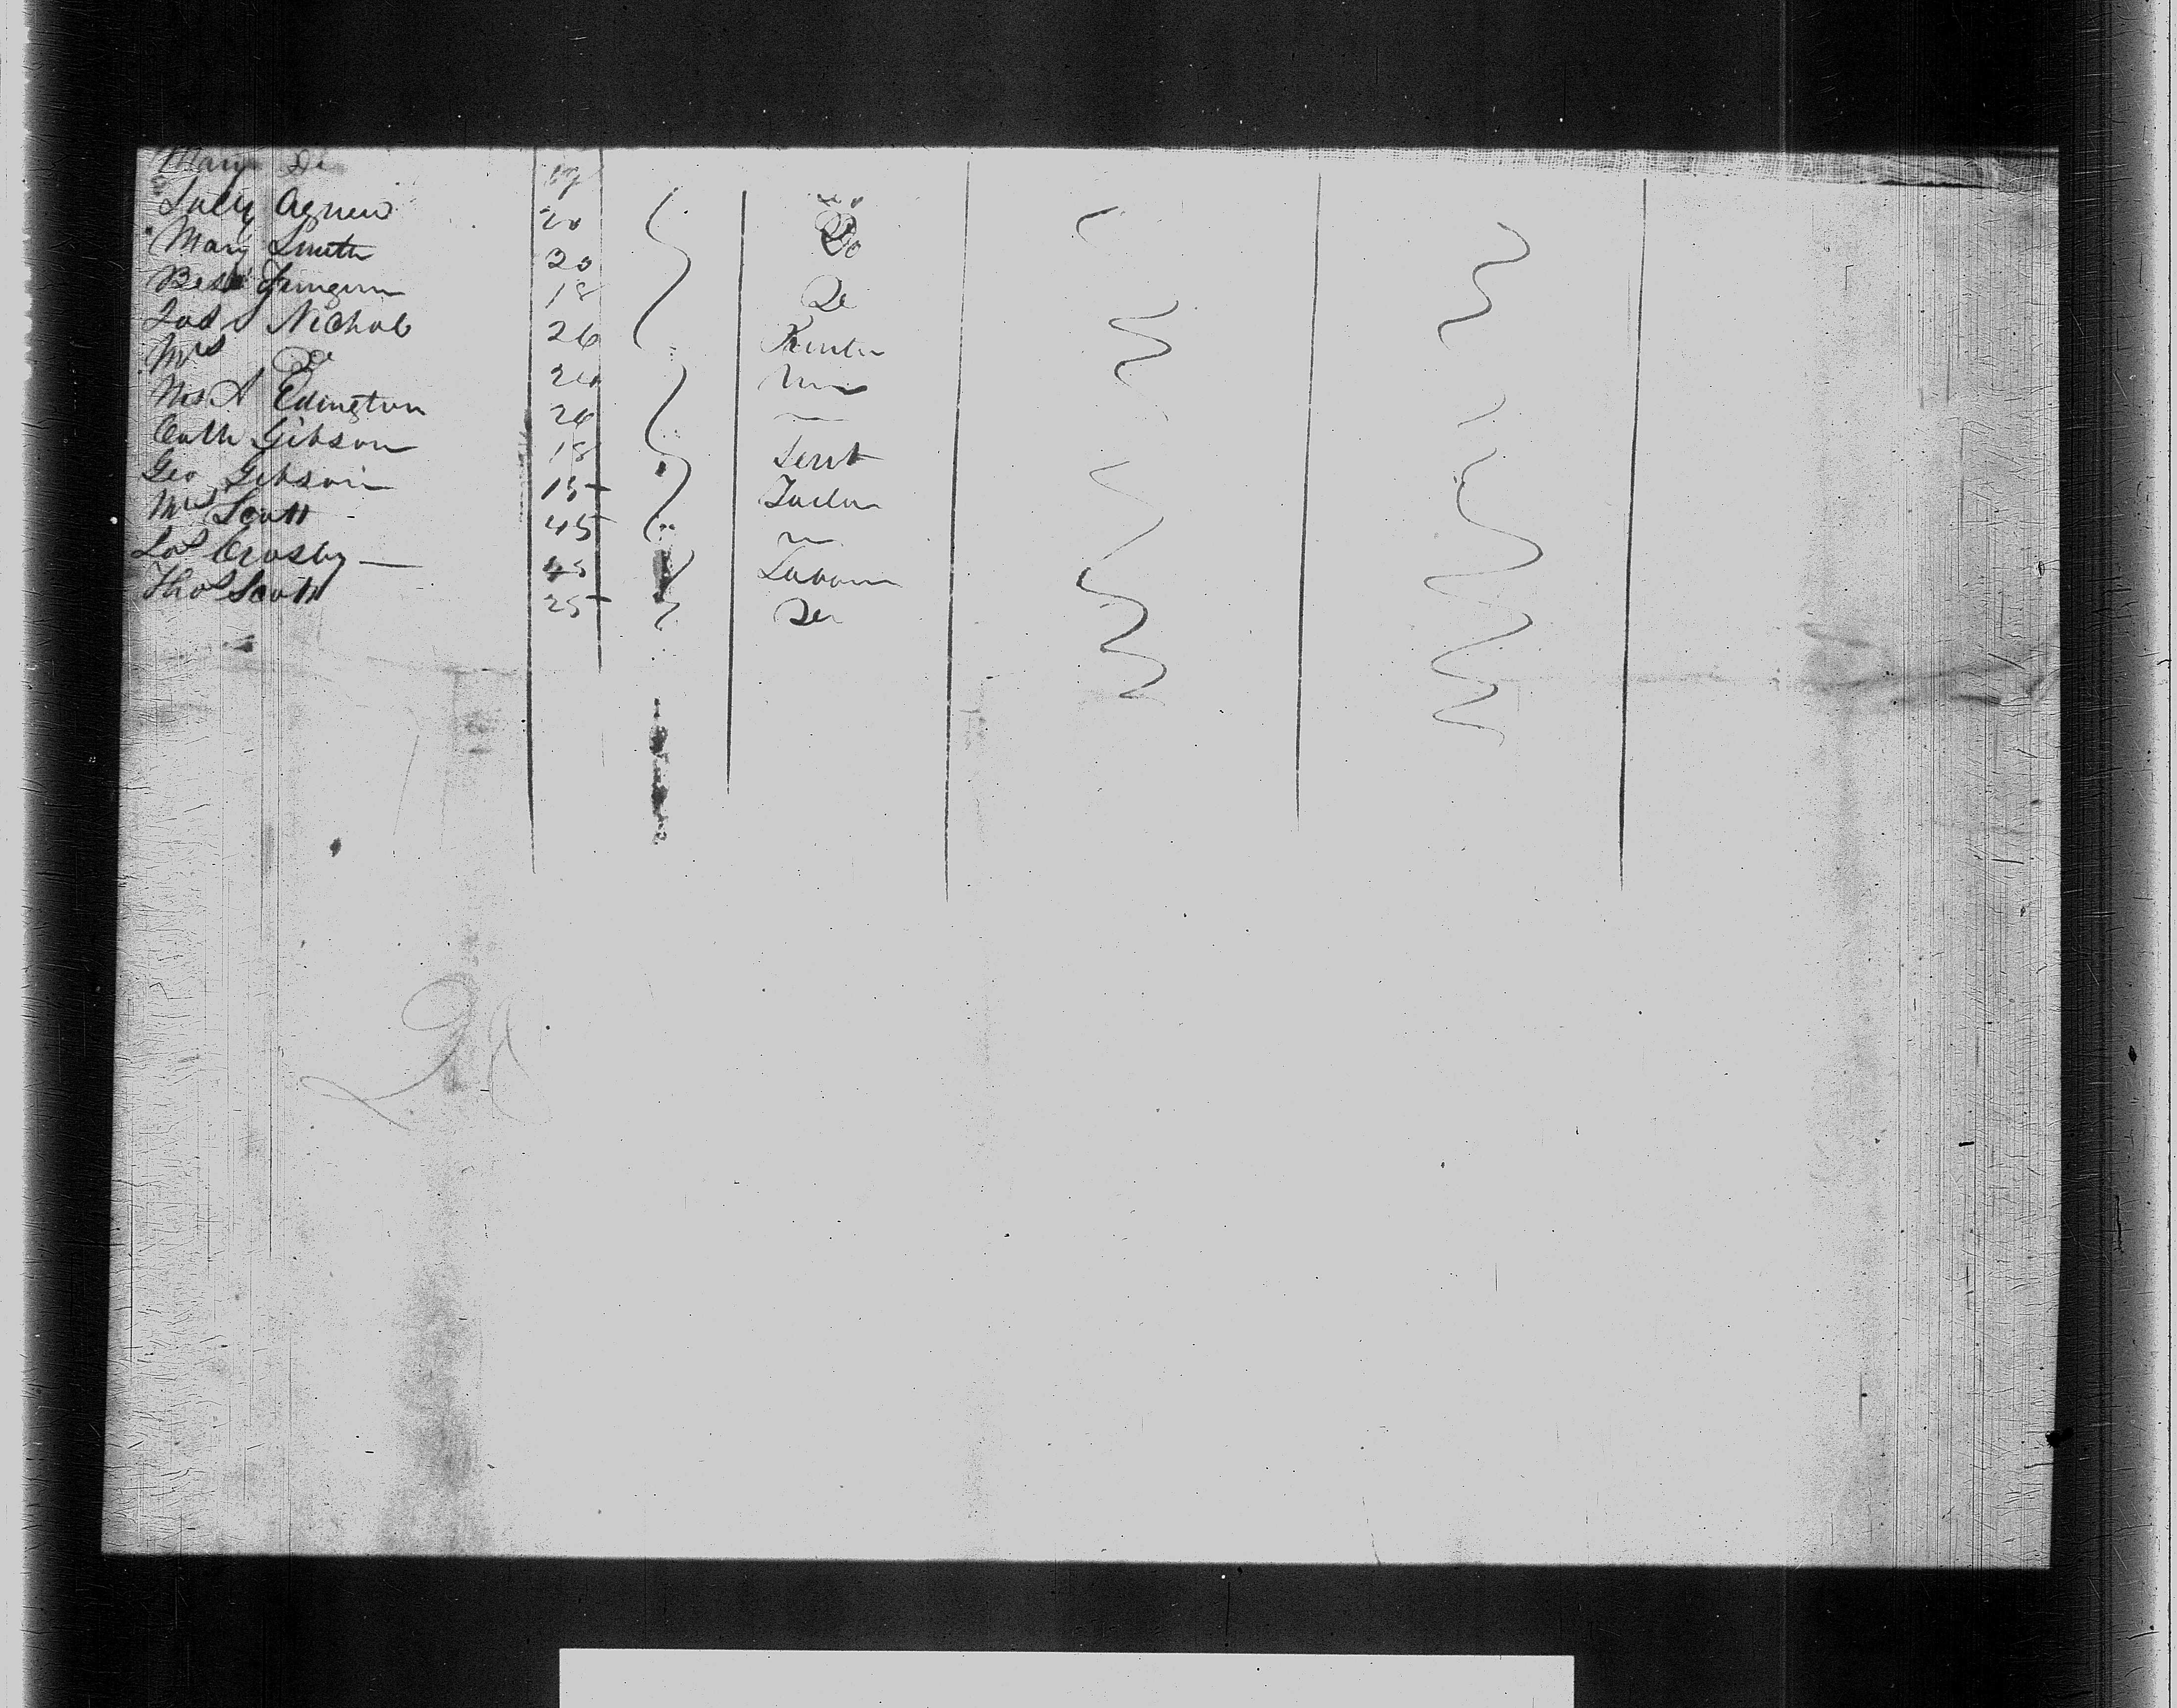 Mary Do
Sally Agnew 20 Do
Mary Smith 20 Do
Bess 18 Do
Jas Nichol 26 Printer
Mrs Do 24
Mrs A Edington 26 —
Cath Gibson 18 Servt
Geo Gibson 15 Tailor
Mrs Scott 45
Jas Crosby — 45 Labourer
Thos Scott 25 Do